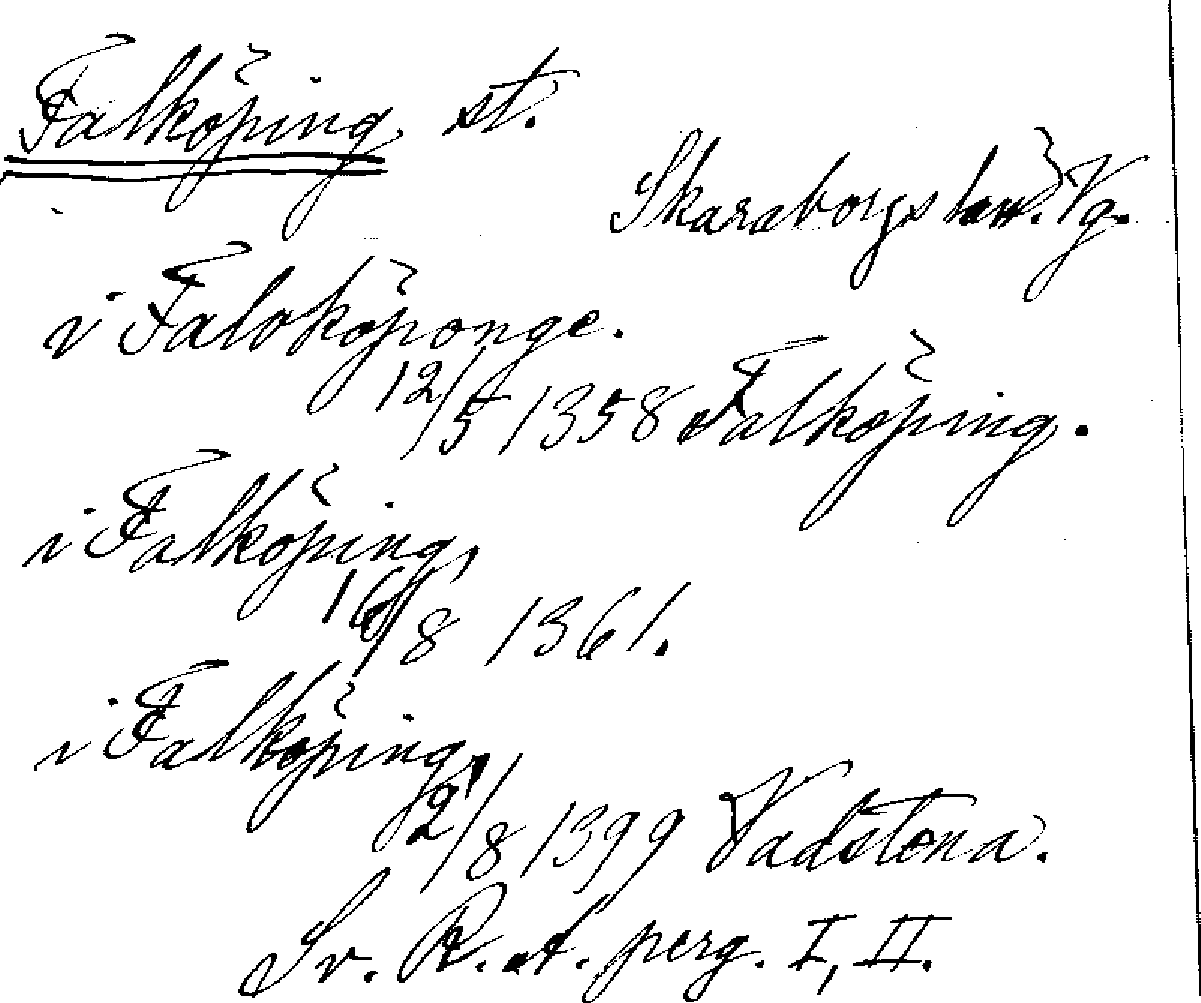 Falköping st.
Skaraborgs län. Vg.
i Faloköponge.
12/5 1358 Falköping.
i Falköping,
16/8 1361.
i Falköping,
2/8 1399 Vadstena.
Sv. R. A. perg. I, II.